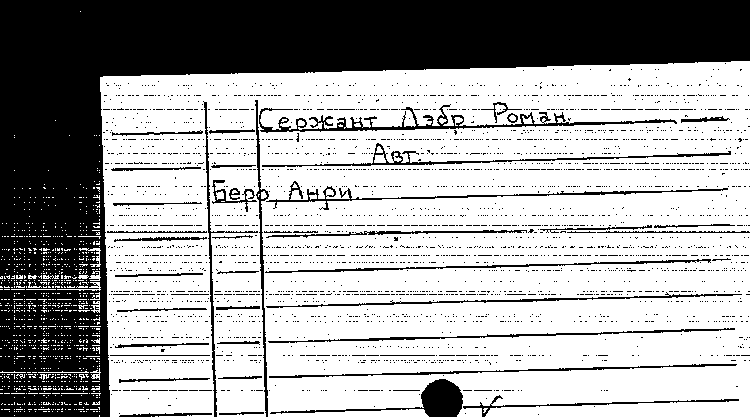 Сержант Лэбр. Роман.
Авт.:
Беро, Анри.